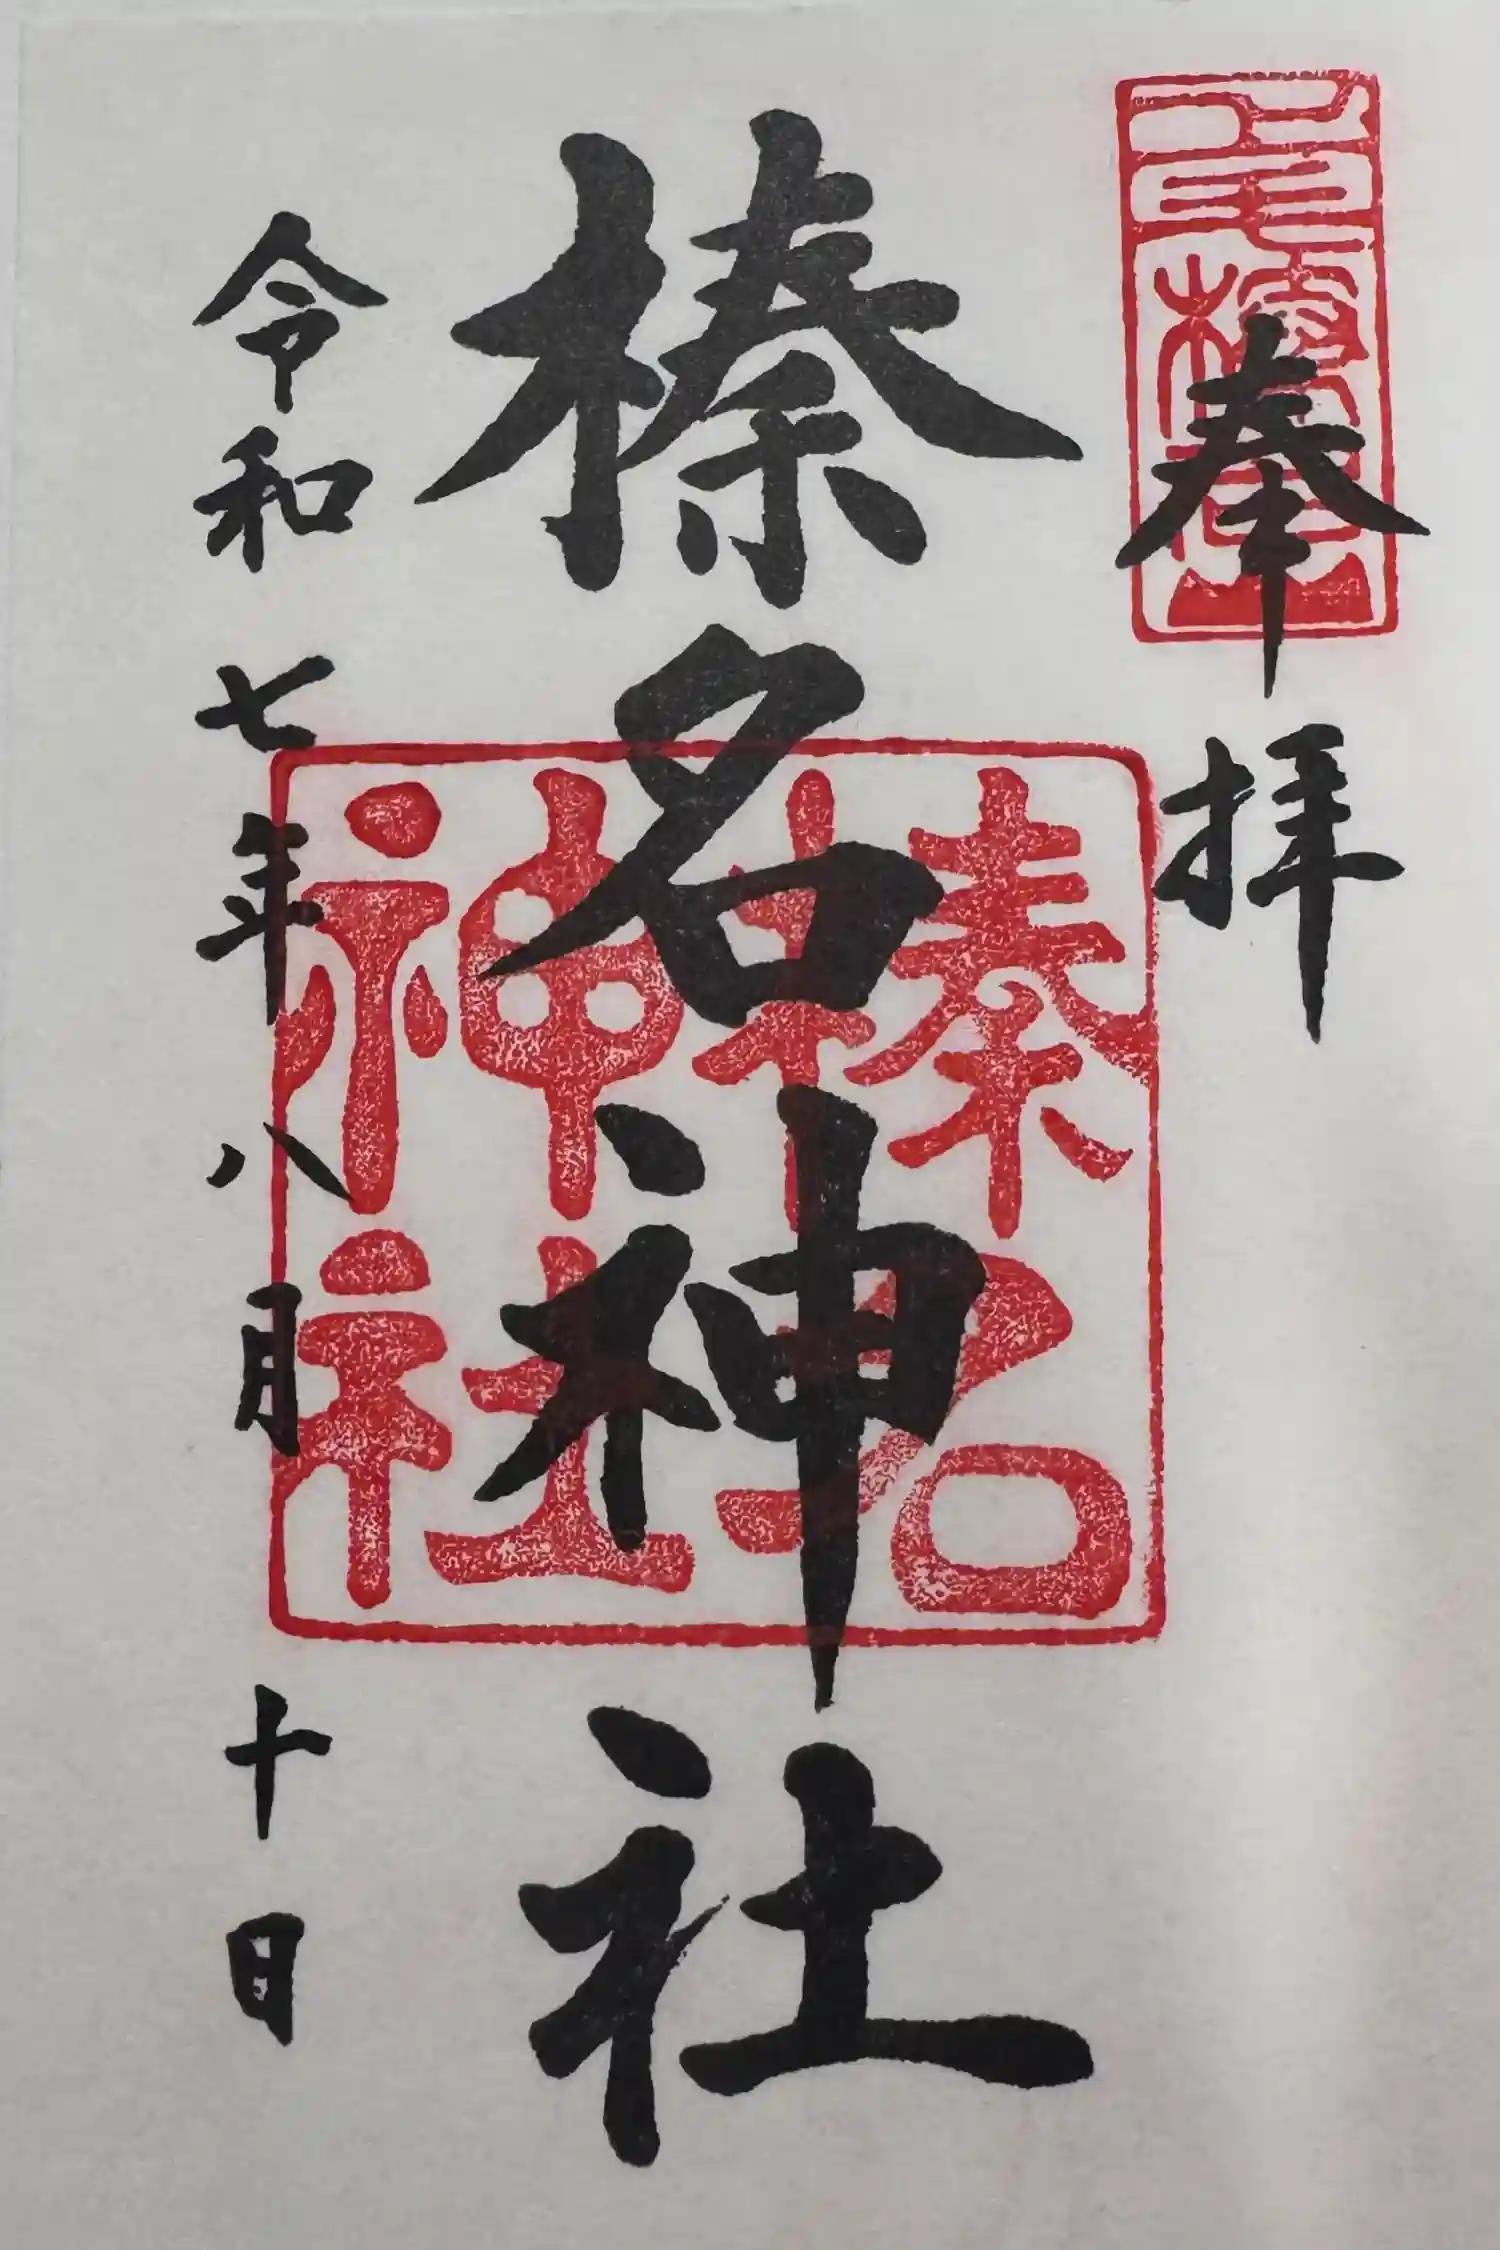 奉拝
榛名神社
榛名神社
令和七年八月十日